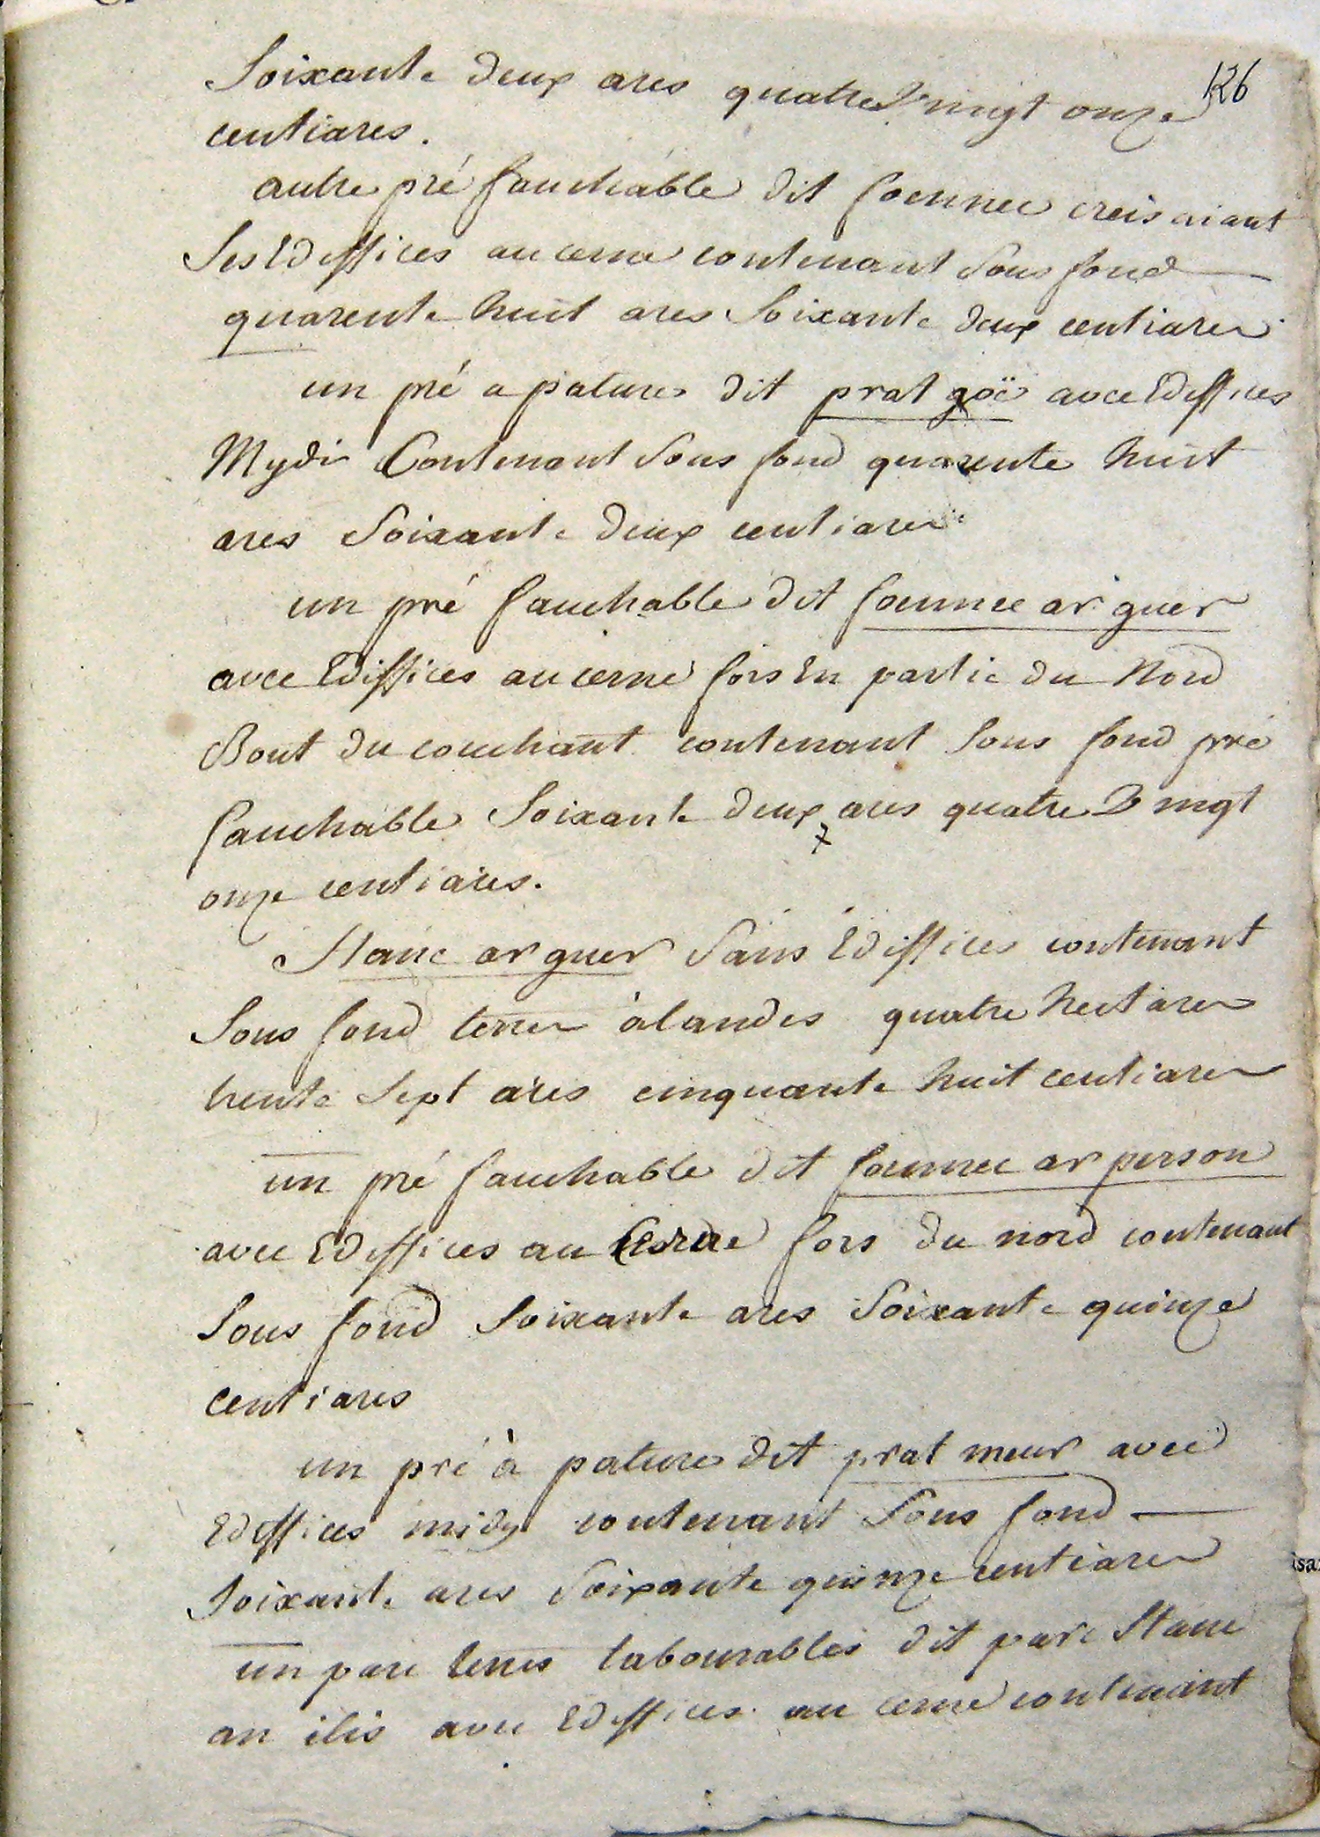 126
Soixante deux ares quatre Vingt onze
centiares.
autre pré fauchable dit foennec creis aiant
Ses Ediffices au cerne contenant Sous fond
quarente huit ares Soixante deux centiares
un pré a pature dit prat goë avec Ediffices
Mydi Contenant Sous fond quarente huit
ares Soixante deux centiares
un pré fauchable dit foennec ar guer
avec Ediffices au cerne fors En partie du Nord
Bout du couchant contenant Sous fond pré
fauchable Soixante deux ares quatre Vingt
onze centiares.
Stanc ar guer Sans Ediffices contenant
Sous fond terre à landes quatre hectares
trente Sept ares cinquante huit centiares
un pré fauchable dit foennec ar person
avec Ediffices au Cerne fors du nord contenant
Sous fond Soixante ares Soixante quinze
centiares
un pré à pature dit prat meur avec
Ediffices midy contenant Sous fond
Soixante ares Soixante quinze centiares
un parc terres labourables dit parc Stanc
an ilis avec Ediffices au cerne contenant